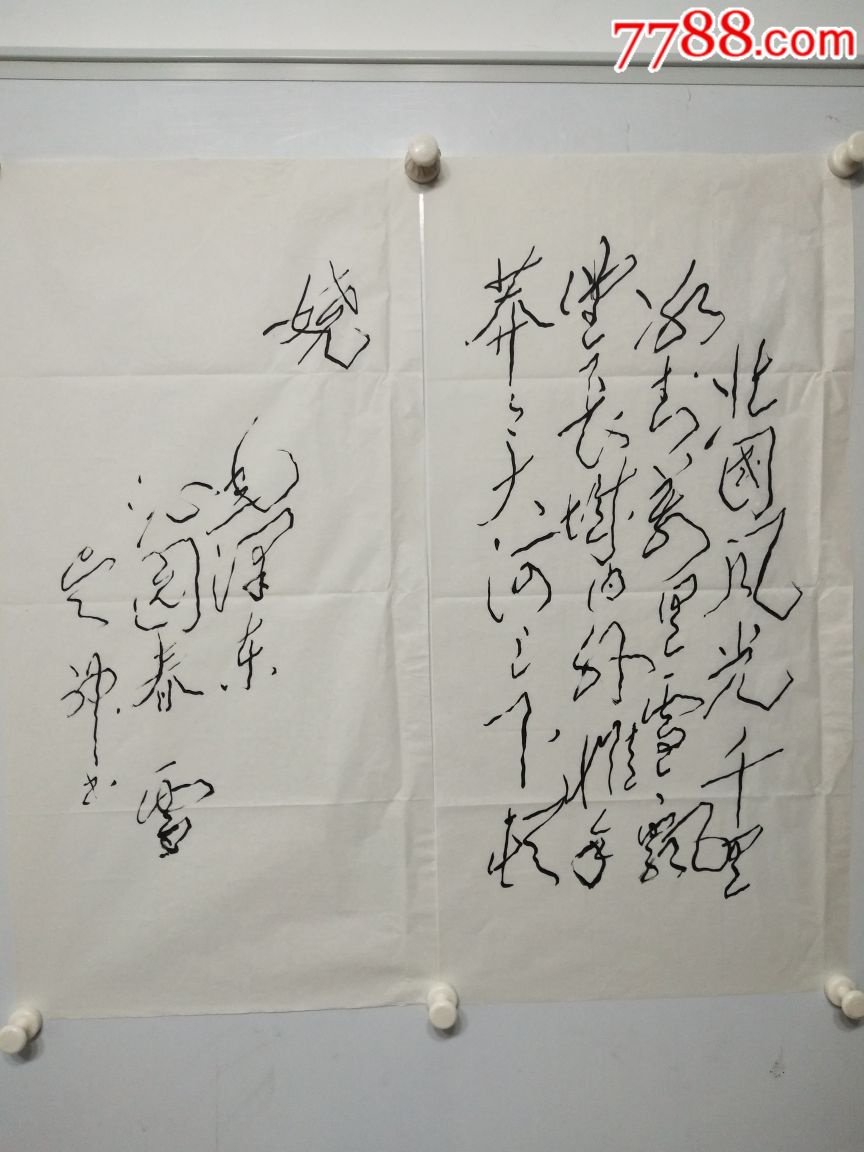 7788.com
北國风光千里
冰封萬里雪飘
望长城内外惟余
莽々大河上下顿
娆
毛泽东
沁园春 雪
书